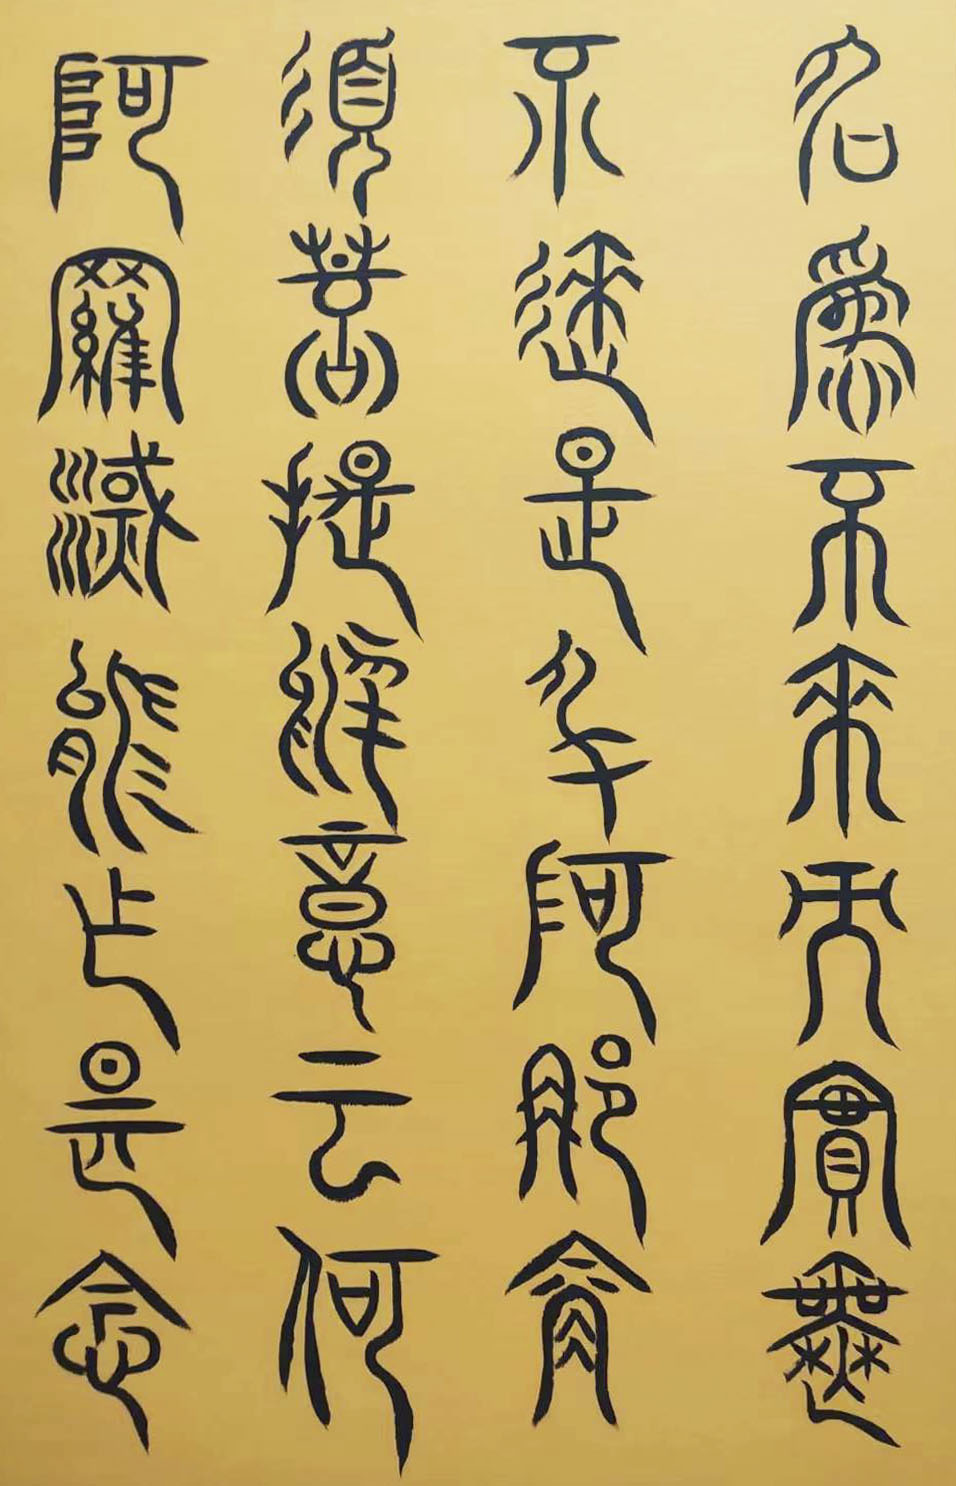 名為不來而實無
不來是名阿那含
須菩提於意云何
阿羅漢能乍是念